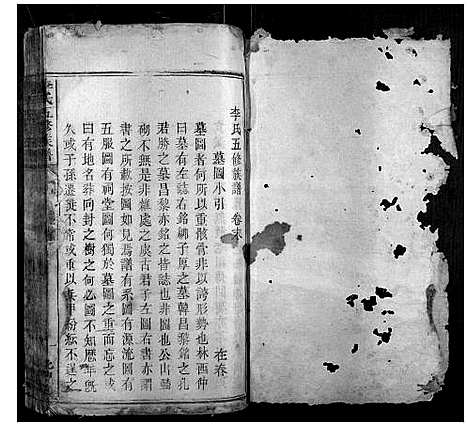 李氏五修族譜 卷末
墓圖小引 在卷
墓圖者何所以重骸骨非以誇形勢也林西仲
曰墓有左誌右銘柳子厚之墓韓昌黎銘之孔
君勝之墓昌黎亦銘之皆誌也非圖也公山
砌不無是非雜處之虞古君子左圖右書亦謂
書之所載按圖如見焉譜有系圖有源流圖有
五服圖有祠堂圖何獨於墓圖之重而忘之或
曰有地名葬向封之樹之何必圖不知歷年旣
久或子孫遷徙不常或重以兵甲紛紜不逞之
李氏五修族譜